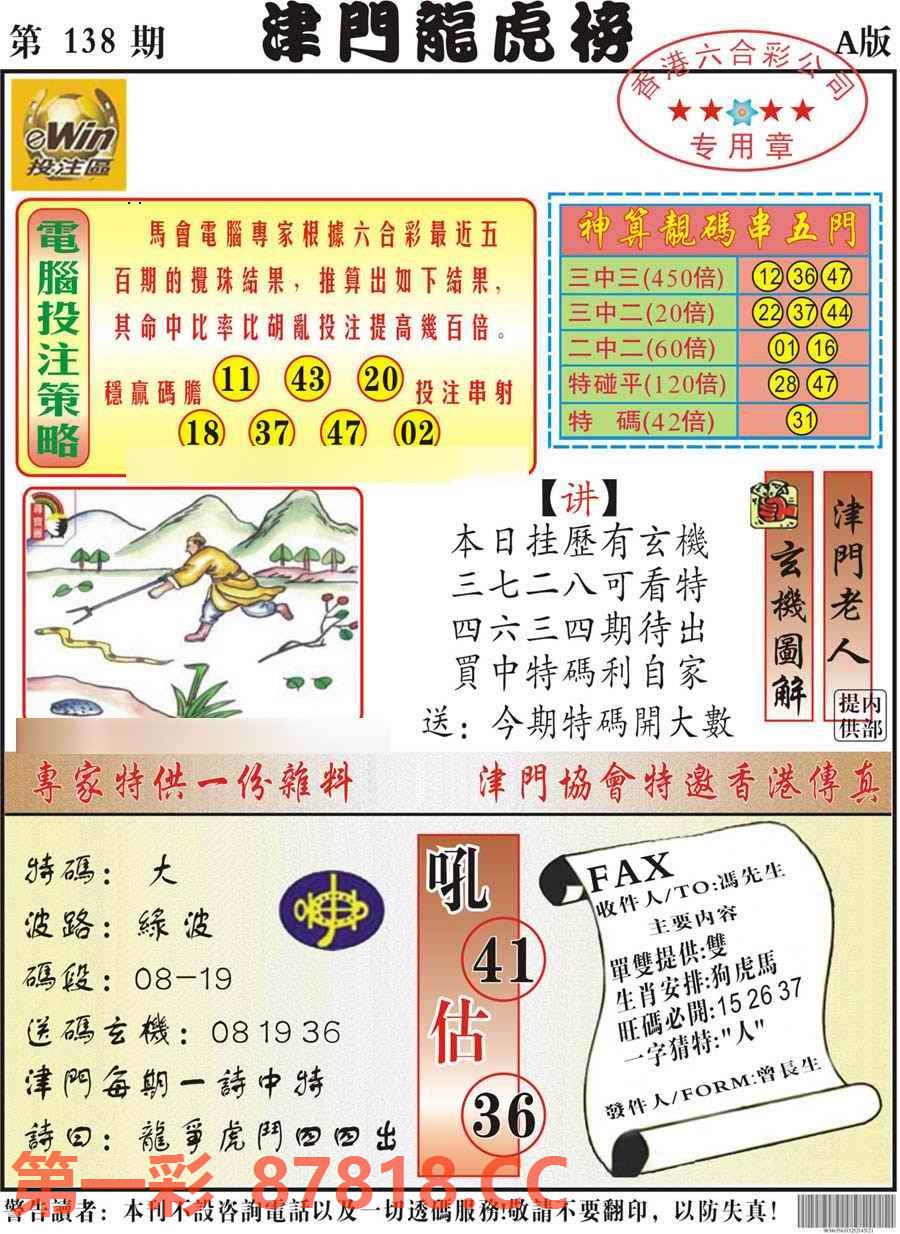 第 138 期
津門龍虎榜
A版
香港六合彩公司
专用章
eWin
投注區
電腦投注策略
馬會電腦專家根據六合彩最近五
百期的攪珠結果，推算出如下結果，
其命中比率比胡亂投注提高幾百倍。
穩贏碼膽 11 43 20 投注串射
18 37 47 02
神算靚碼串五門
三中三(450倍) 12 36 47
三中二(20倍) 22 37 44
二中二(60倍) 01 16
特碰平(120倍) 28 47
特 碼(42倍) 31
尋寶圖
【讲】
本日挂歷有玄機
三七二八可看特
四六三四期待出
買中特碼利自家
送：今期特碼開大數
玄機圖解
津門老人
内部提供
專家特供一份雜料
津門協會特邀香港傳真
特碼： 大
波路： 綠波
碼段： 08-19
送碼玄機：08 19 36
津門每期一詩中特
詩曰：龍爭虎鬥四四出
吼
41
估
36
FAX
收件人/TO:馮先生
主要内容
單雙提供:雙
生肖安排:狗虎馬
旺碼必開:15 26 37
一字猜特:"人"
發件人/FORM:曾長生
第一彩 87818.CC
警告讀者：本刊不設咨詢電話以及一切透碼服務!敬請不要翻印，以防失真!